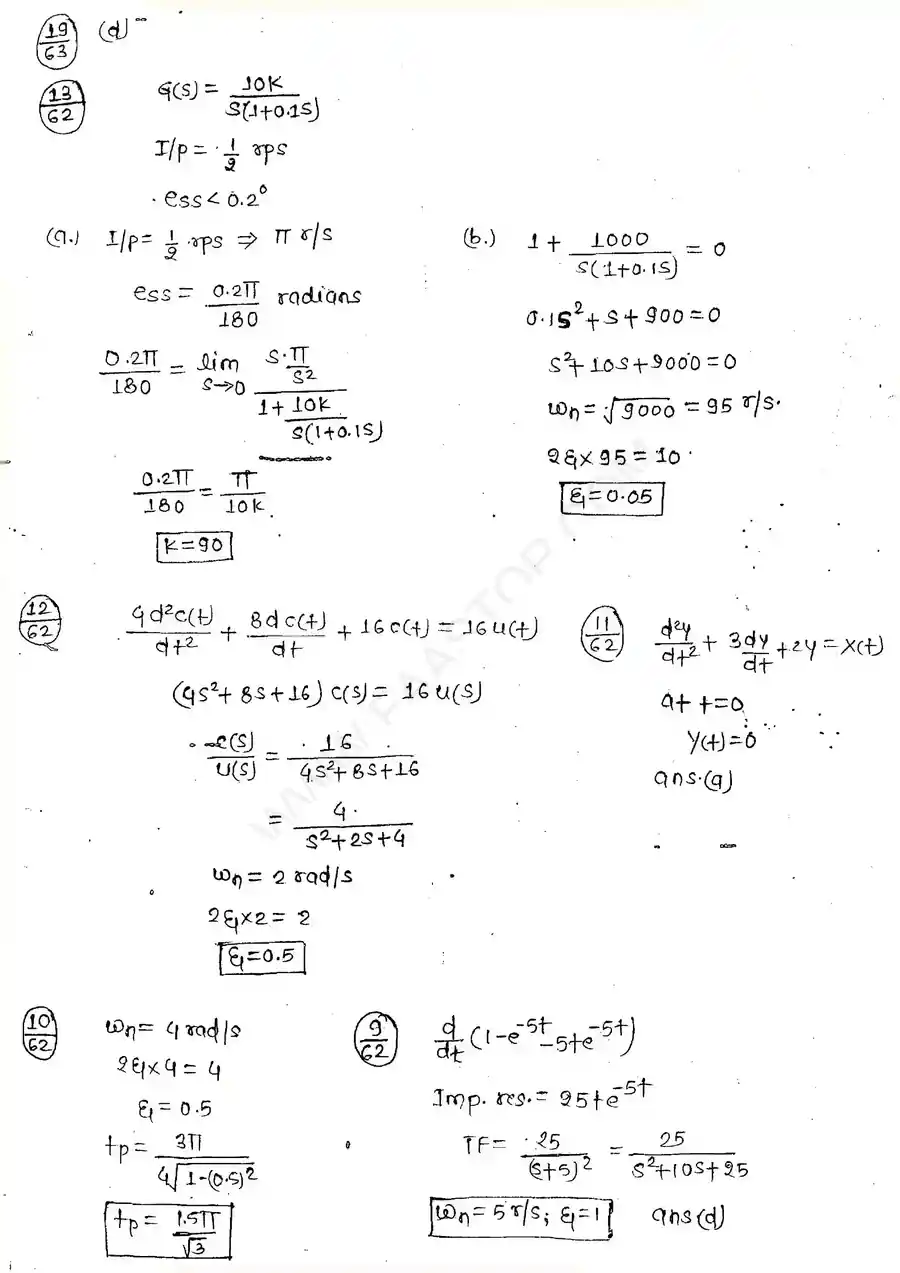 19/63 (d)
13/62 G(s) = 10K / S(1+0.1S)
I/p = 1/2 rps
ess < 0.2°
(a.) I/p = 1/2 rps ⇒ π r/s
ess = 0.2π/180 radians
0.2π/180 = lim S→0 (S·π/S2) / (1 + 10K/S(1+0.1S))
0.2π/180 = π/10K
K = 90
(b.) 1 + 1000/S(1+0.1S) = 0
0.1S² + S + 900 = 0
S² + 10S + 9000 = 0
ωn = √9000 = 95 r/s.
2ξ × 95 = 10
ξ = 0.05
12/62 4d²c(t)/dt² + 8dc(t)/dt + 16c(t) = 16u(t)
(4S² + 8S + 16) C(S) = 16 U(S)
C(S)/U(S) = 16/4S²+8S+16
= 4/S²+2S+4
ωn = 2 rad/s
2ξ × 2 = 2
ξ = 0.5
11/62 d²y/dt² + 3dy/dt + 2y = x(t)
at t=0
y(t)=0
ans.(a)
10/62 ωn = 4 rad/s
2ξ × 4 = 4
ξ = 0.5
tp = 3π / 4√1-(0.5)²
tp = 1.5π/√3
9/62 d/dt (1-e^-5t - 5te^-5t)
Imp. res. = 25te^-5t
TF = 25/(S+5)² = 25/S²+10S+25
ωn = 5 r/s; ξ = 1 ans(d)